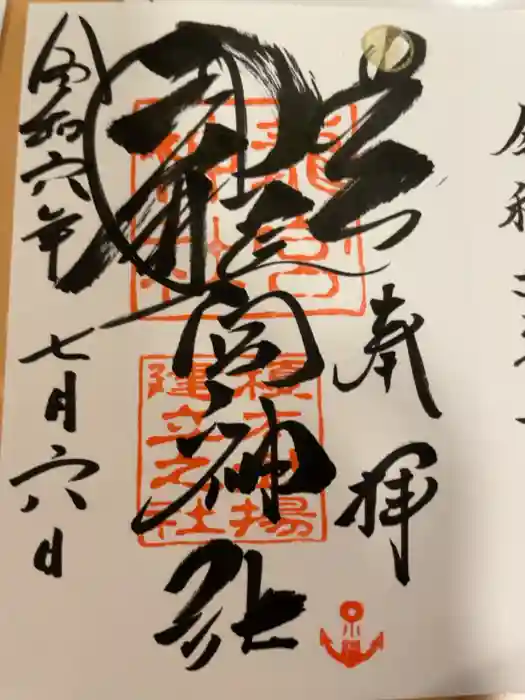 奉拝
龍宮神社
令和六年七月六日
龍宮
神社
榎本武揚
建立之社